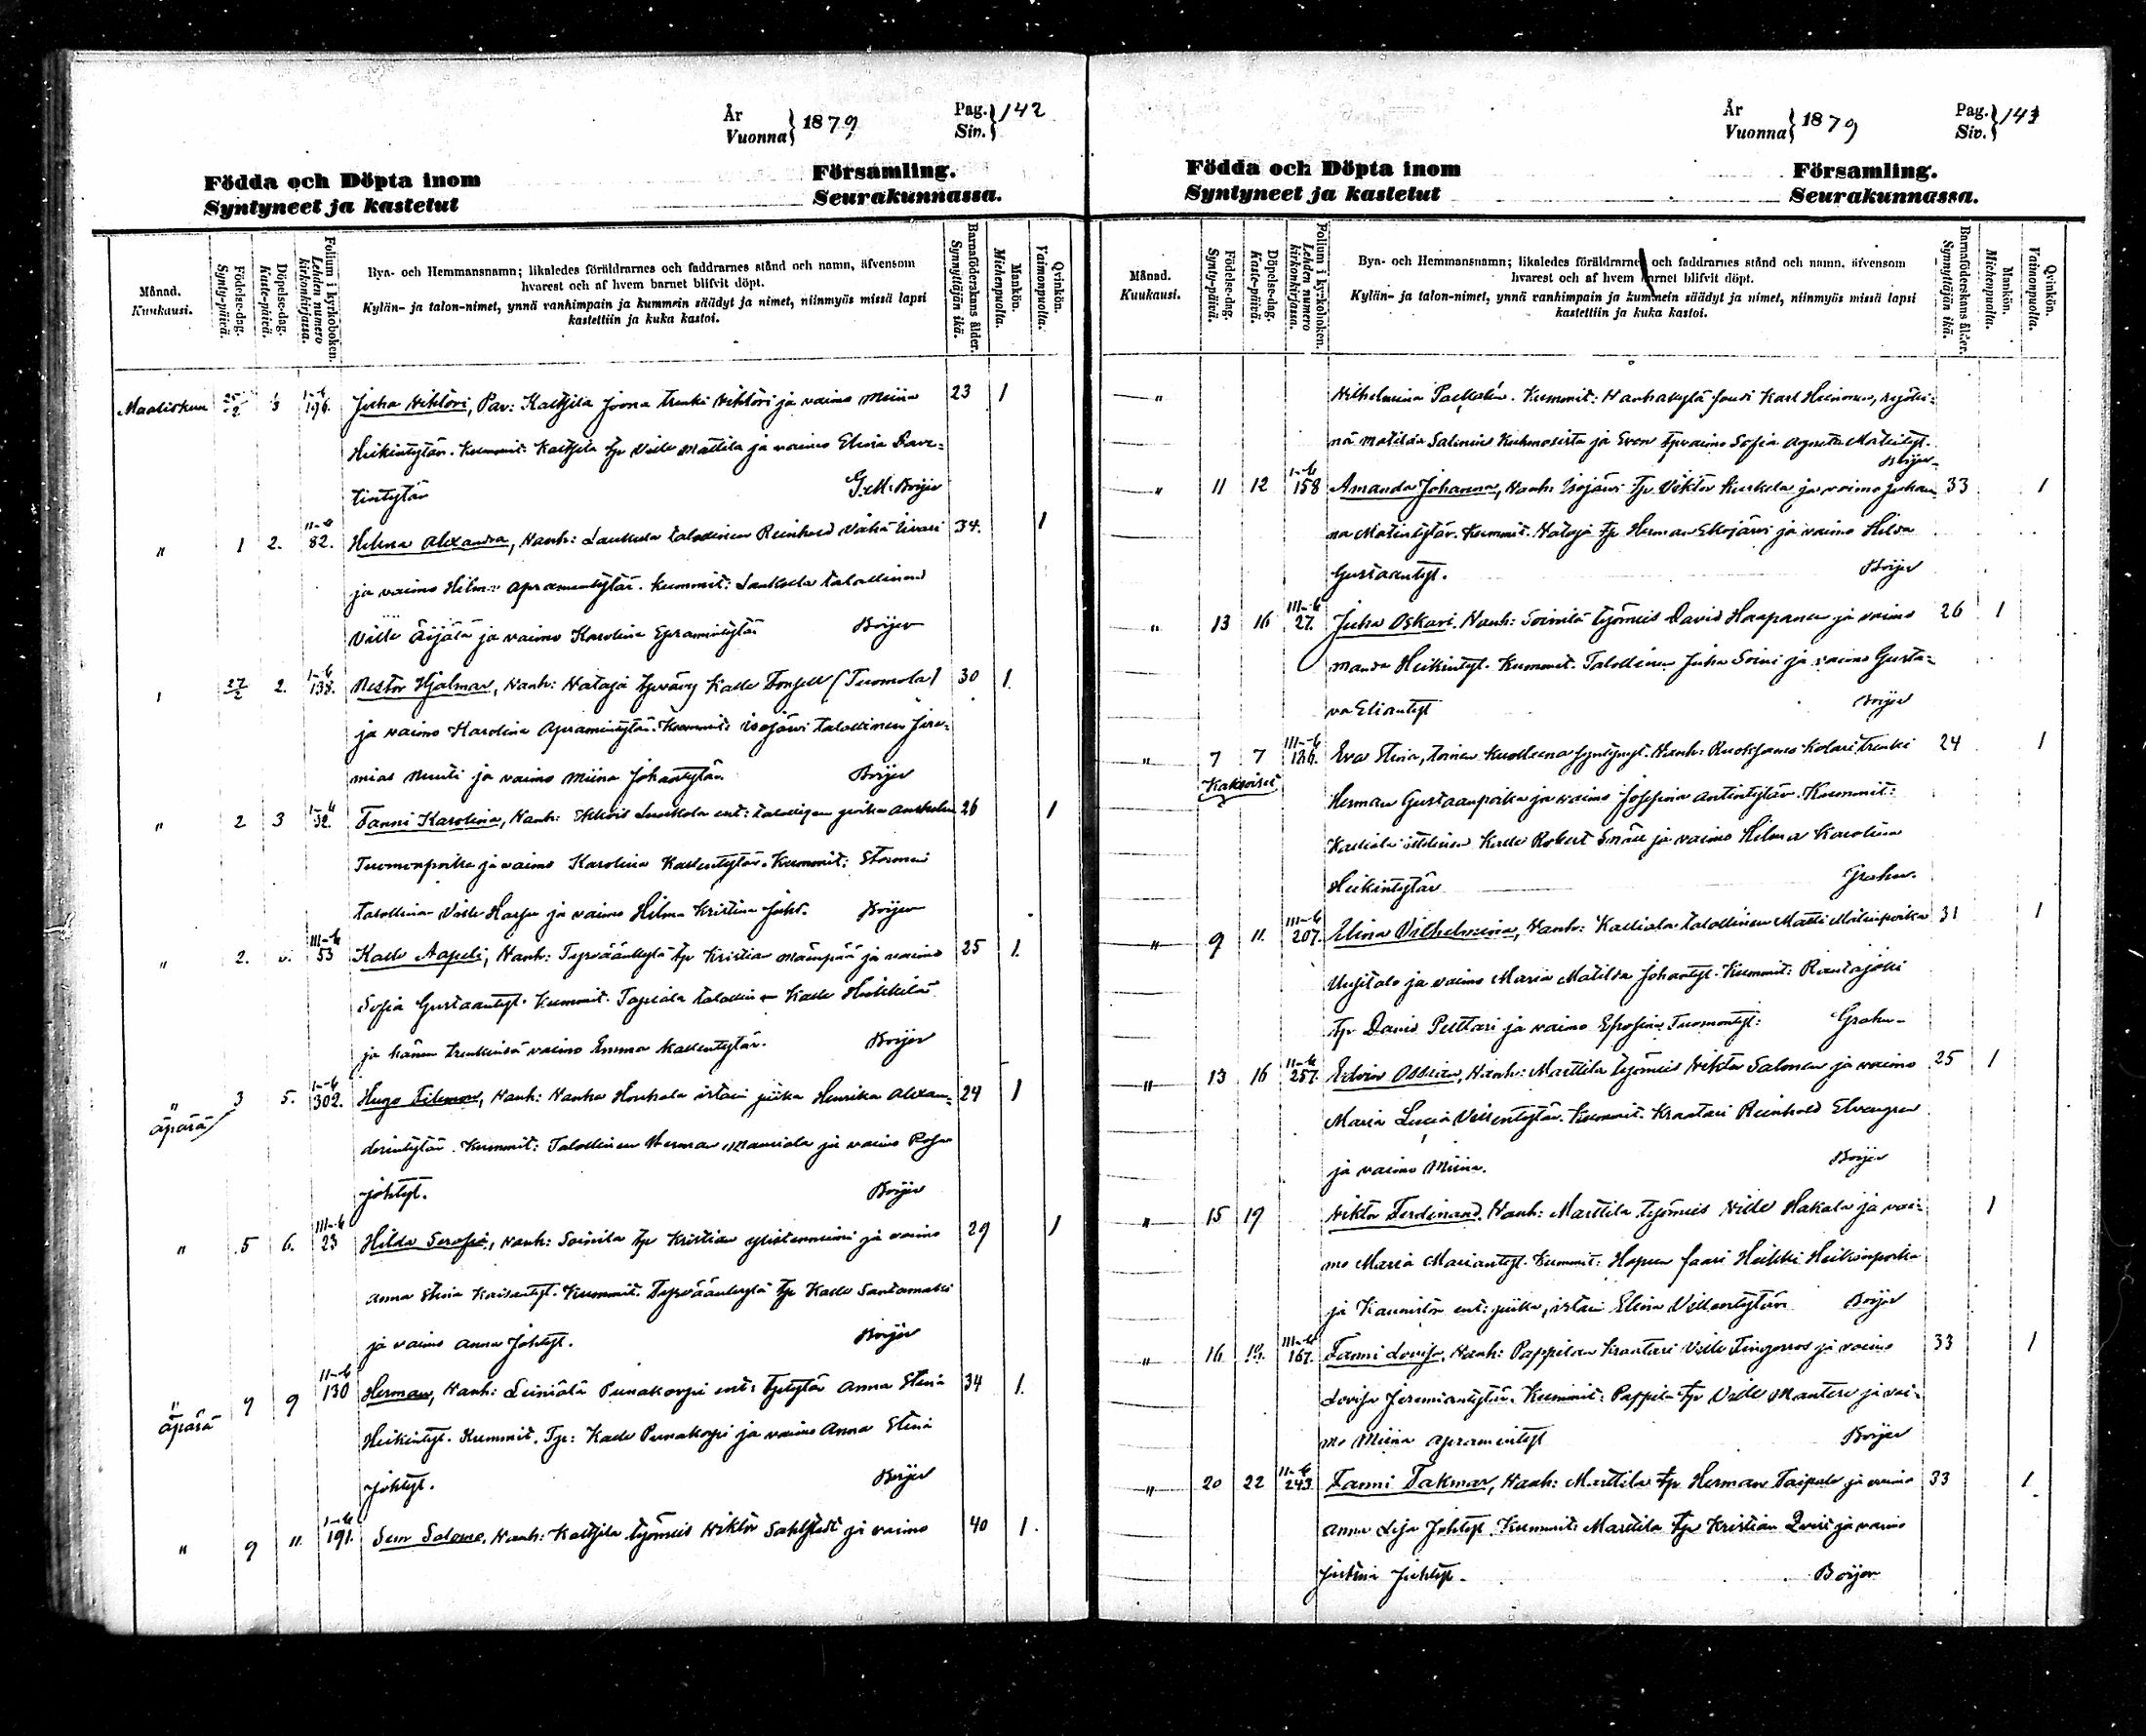 År
Vuonna } 1879
Pag.
Siv. } 142
Födda och Döpta inom Församling.
Syntyneet ja kastetut Seurakunnassa.
Månad.
Kuukausi.
Födelse-dag.
Synty-päivä.
Döpelse-dag.
Kaste-päivä.
Folium i kyrkoboken.
Lehden numero kirkonkirjassa.
Bya- och Hemmansnamn; likaledes föräldrarnes och faddrarnes stånd och namn, äfvensom
hvarest och af hvem barnet blifvit döpt.
Kylän- ja talon-nimet, ynnä vanhimpain ja kummein säädyt ja nimet, niinmyös missä lapsi
kastettiin ja kuka kastoi.
Barnaföderskans ålder.
Synnyttäjän ikä.
Mankön.
Miehenpuolta.
Qvinkön.
Vaimonpuolta.
Maaliskuu 25/2 1/3 I-b 196. Juha Wiktori, Van: Kaltsila Joona trenki Wiktori ja vaimo Miina 23 1
Heikintytär. Kummit: Kaltsila tp Ville Mattila ja vaimo Elina Dave-
tintytär G.M. Boijer
" 1 2. II-b 82. Helma Alexandra, Vanh: Laukula talollinen Reinhold Vähä Iivari 34. 1
ja vaimo Helma Apramintytär. Kummit: Laukula talollinen
Ville Äijälä ja vaimo Karolina Epramintytär Boijer
" 27/2 2. I-b 138. Nestor Hjalmar, Vanh: Nataja tpvävy Kalle Fonsell (Tuomola) 30 1.
ja vaimo Karolina Apramintytär. Kummit: Isojärvi talollinen Jere-
mias Nuuti ja vaimo Miina Johantytär Boijer
" 2 3 I-b 32. Fanni Karolina, Vanh: Leukola ent: talollisen poika Anshelm 26 1
Tuomonpoika ja vaimo Karolina Kallentytär. Kummit: Stormi
talollinen Ville Harju ja vaimo Hilma Kristina Joht. Boijer
" 2. III-b 53 Kalle Aapeli, Vanh: Tyrväänkylä tp Kristian Mäenpää ja vaimo 25 1.
Sofia Gustaantyt. Kummit: Tapiala talollinen Kalle Heikkilä
ja hänen trenkinsä vaimo Emma Kallentytär. Boijer
" 3 5. I-b 302. Hugo Filemon, Vanh: Vanha Honkala irtain piika Henrika Alexan- 24 1
äpärä
derintytär. Kummit: Talollinen Herman Mauriala ja vaimo Rosa
Johtyt. Boijer
" 5 6. III-b 23 Hilda Serafia, Vanh: Soinila tp Kristian Ylistenniemi ja vaimo 29 1
Anna Stina Kaisantyt. Kummit: Tyrväänkylä tp Kalle Santamäki
ja vaimo Anna Johtyt. Boijer
" 7 9 II-b 130 Herman, Vanh: Leiniälä Punakorpi ent: tptytär Anna Stina 34 1.
äpärä
Heikintyt. Kummit: Tp: Kalle Punakorpi ja vaimo Anna Stina
Johtyt. Boijer
" 9 11. I-b 191. Sem Salomo, Vanh: Kaltsila työmies Wiktor Sahlstedt ja vaimo 40 1.
År
Vuonna } 1879
Pag.
Siv. } 143
Födda och Döpta inom Församling.
Syntyneet ja kastetut Seurakunnassa.
Månad.
Kuukausi.
Födelse-dag.
Synty-päivä.
Döpelse-dag.
Kaste-päivä.
Folium i kyrkoboken.
Lehden numero kirkonkirjassa.
Bya- och Hemmansnamn; likaledes föräldrarnes och faddrarnes stånd och namn, äfvensom
hvarest och af hvem barnet blifvit döpt.
Kylän- ja talon-nimet, ynnä vanhimpain ja kummein säädyt ja nimet, niinmyös missä lapsi
kastettiin ja kuka kastoi.
Barnaföderskans ålder.
Synnyttäjän ikä.
Mankön.
Miehenpuolta.
Qvinkön.
Vaimonpuolta.
" Wilhelmina Kummit: Vanhakylä Karl Heinonen,
nä Matilda Salenius Kuhmosista ja Even tpvaimo Sofia Agneta Matintyt.
Boijer
" 11 12 I-b 158 Amanda Johanna, Vanh: Isojärvi tp. Viktor Kurkela ja vaimo Johan 33 1
na Matintytär. Kummit: Nataja tp Herman Ekojärvi ja vaimo Hilda
Gustaantyt. Boijer
" 13 16 III-b 27. Juha Oskari. Vanh: Soinila työmies David Haapanen ja vaimo 26 1
Manda Heikintyt. Kummit: Talollinen Juha Soini ja vaimo Gusta-
va Eliantyt Boijer
" 7 7 III-b 126. Eva Stina, toinen kuolleena syntynyt. Vanh: Ruoksamo Kolari trenki 24 1
Kaksoiset
Herman Gustaanpoika ja vaimo Josefina Antintytär. Kummit:
Kalliala itsellinen Kalle Robert Snäll ja vaimo Hilma Karolina
Heikintytär Grahn.
" 9 11. III-b 207. Elina Vilhelmiina, Vanh: Kalliala talollinen Matti Matinpoika 31 1
Uusitalo ja vaimo Maria Matilda Johantyt. Kummit: Rautajoki
tp David Puttari ja vaimo Efrosina Tuomontyt: Grahn-
" 13 16 II-b 257. Edvin Ossian, Vanh: Marttila työmies Viktor Salonen ja vaimo 25 1
Maria Lucia Villentytär. Kummit: Kraatari Reinhold Elvengren
ja vaimo Miina. Boijer
" 15 19 Viktor Ferdinand. Vanh: Marttila työmies Ville Hakala ja vai- 1
mo Maria Mariantyt. Kummit: Hopun faari Heikki Heikinpoika
ja Kauniston ent: piika, irtain Elina Villentytär Boijer
" 16 III-b 167. Fanni Lovisa, Vanh: Pappilan kraatari Ville Fingerroos ja vaimo 33 1
Lovisa Jeremiantytär. Kummit: Pappila tp Ville Mantere ja vai-
mo Miina Apramintyt Boijer
" 20 22 II-b 243 Fanni Takmar, Vanh: Marttila tp Herman Taipale ja vaimo 33 1
Anna Lisa Johtyt. Kummit: Marttila tp Kristian Qvist ja vaimo
Justina Juhtyt. Boijer